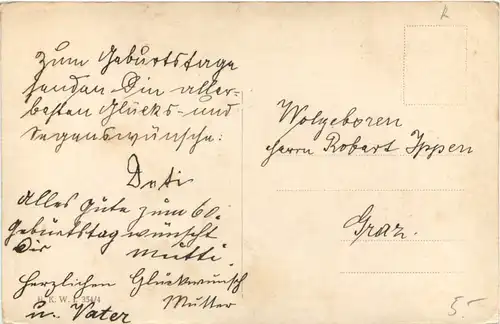 Zum Geburtstage
senden Dir aller-
besten Glücks- und
Segenswünsche:
Dati
Alles gute zum 60.
Geburtstag wünscht
Dir Mutti.
Herzlichen Glückwunsch
Mutter
u. Vater
K. W. I. 354/4
Wolgeboren
Herrn Robert Ippen
Graz.
5.-